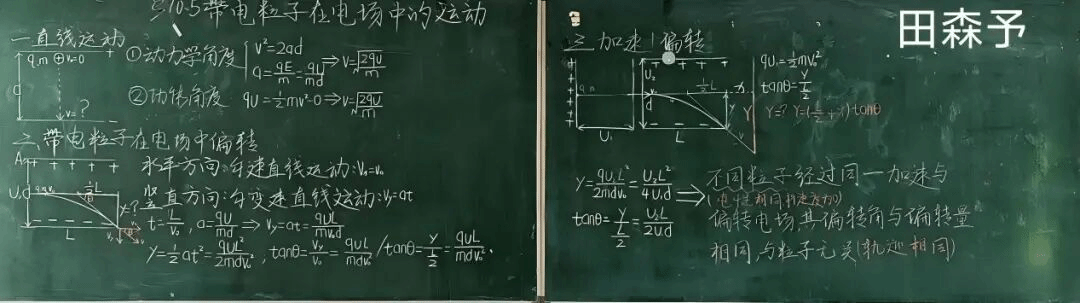 §10.5带电粒子在电场中的运动
一直线运动
q.m V₀=0
+
d
V=?
-
①动力学角度 { V²=2ad
a=qE/m=qu/md ⇒ V=√(2qu/m)
②功能角度 qU=½mv²-0 ⇒ V=√(2qu/m)
二、带电粒子在电场中偏转
A + + + + +
U.d q.m V₀ ½L
y=?
- - - - -
L
水平方向:匀速直线运动:Vₓ=V₀
竖直方向:匀变速直线运动:Vy=at
t=L/V₀, a=qU/md ⇒ Vy=at=qUL/mdV₀
Y=½at²=qUL²/2mdV₀², tanθ=Vy/V₀=qUL/mdV₀² / tanθ=Y/(L/2)=qUL/mdV₀².
田森予
三 加速|偏转
+ + + + +
U₂ d ½L
q m
U₁ L
Y
qU₁=½mV₀²
tanθ=Y/(L/2)
Y=? Y=(L/2+x)tanθ
Y=qU₂L²/2mdV₀²=U₂L²/4U₁d
tanθ=Y/(L/2)=U₂L/2U₁d
⇒ 不同粒子经过同一加速与
(电性相同
偏转电场其偏转角与偏转量
相同,与粒子无关(轨迹相同)